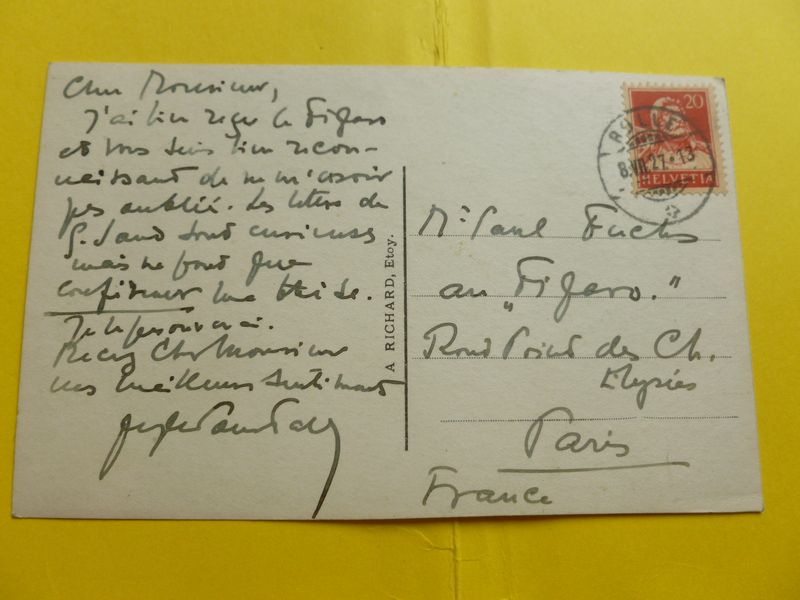 Cher Monsieur,
J'ai bien reçu le Figaro
et vous suis bien recon-
naissant de ne m'avoir
pas oublié. Les lettres de
G. Sand sont curieuses
mais ne font que
confirmer ma thèse.
Je le prouverai.
Recevez Cher Monsieur
mes meilleurs sentiments
A RICHARD, Etoy.
20
HELVETIA
ROLLE
8.VII.27.-13
Mr Paul Fuchs
au "Figaro."
Rond Point des Ch.
Elysées
Paris
France